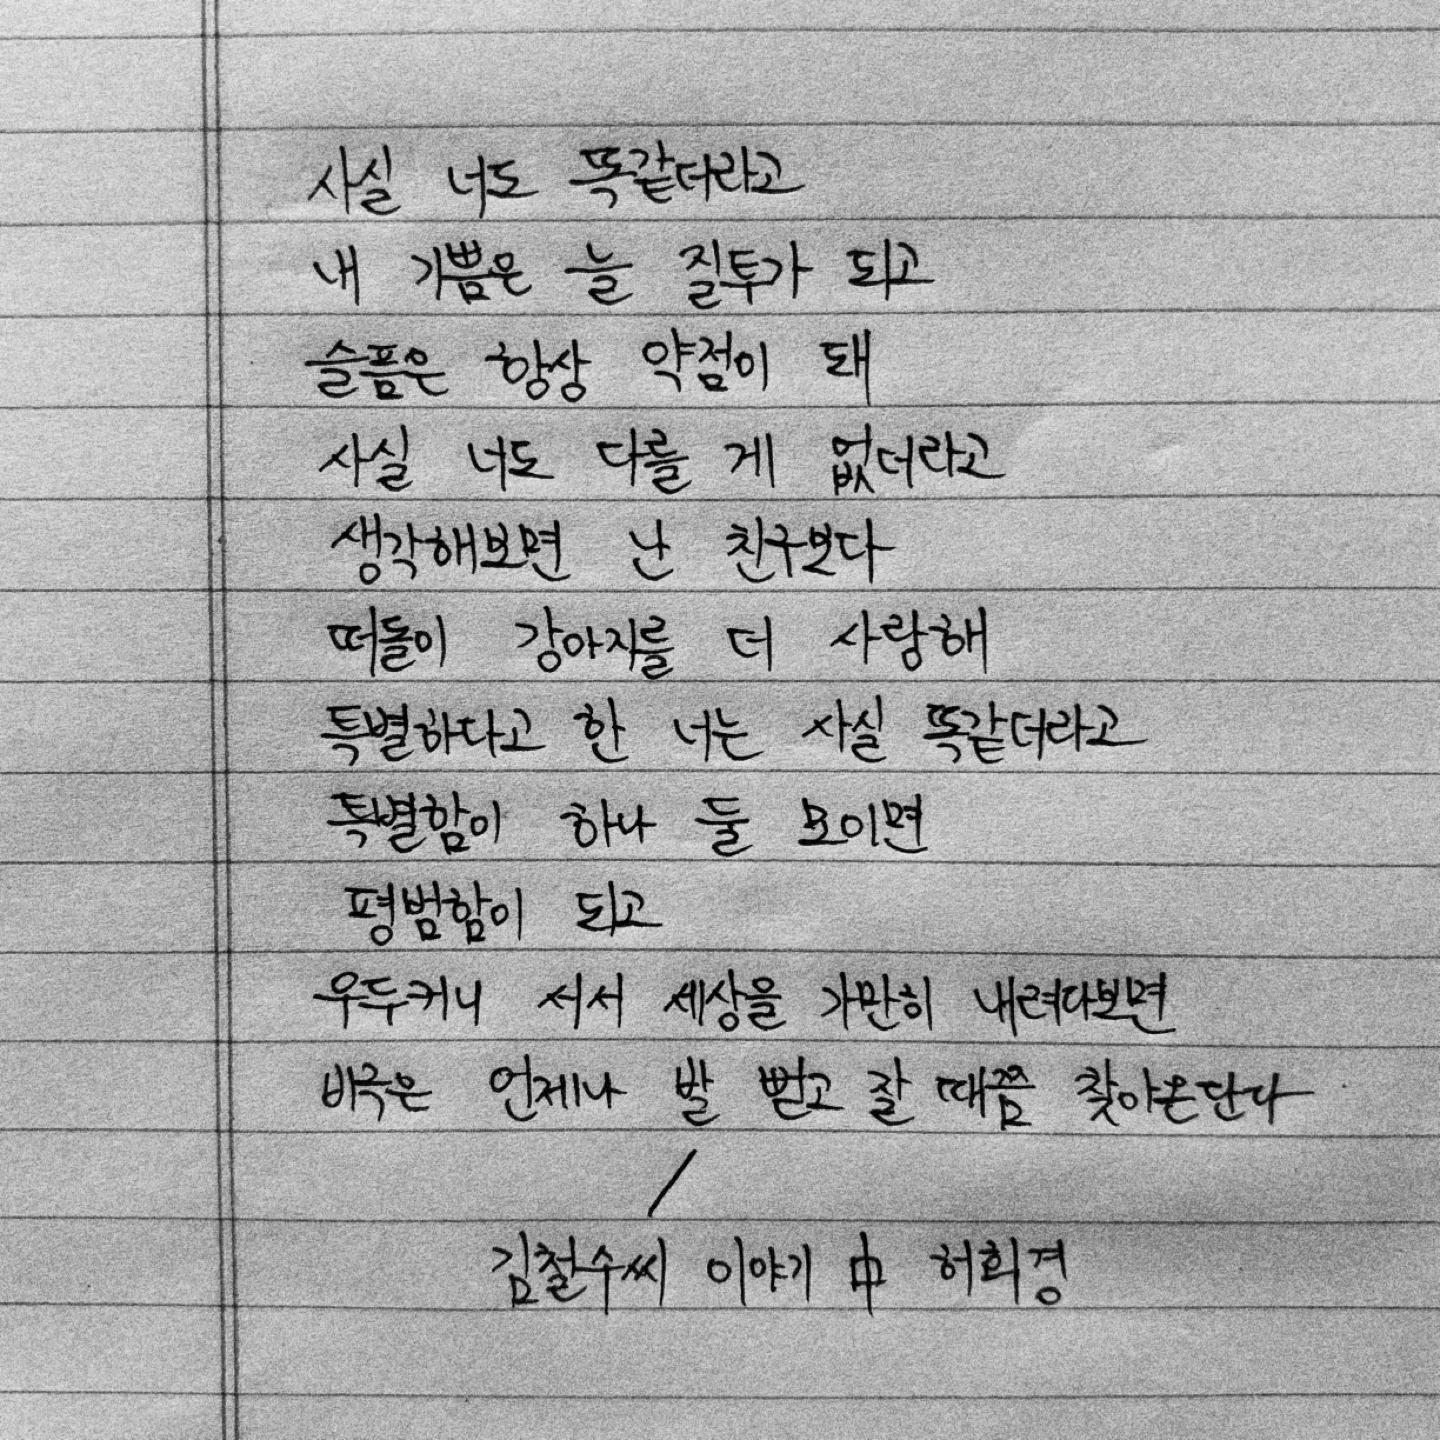 사실 너도 똑같더라고
내 기쁨은 늘 질투가 되고
슬픔은 항상 약점이 돼
사실 너도 다를 게 없더라고
생각해보면 난 친구보다
떠돌이 강아지를 더 사랑해
특별하다고 한 너는 사실 똑같더라고
특별함이 하나 둘 모이면
평범함이 되고
우두커니 서서 세상을 가만히 내려다보면
비극은 언제나 발 뻗고 잘 때쯤 찾아온단다
/
김철수씨 이야기 中 허회경